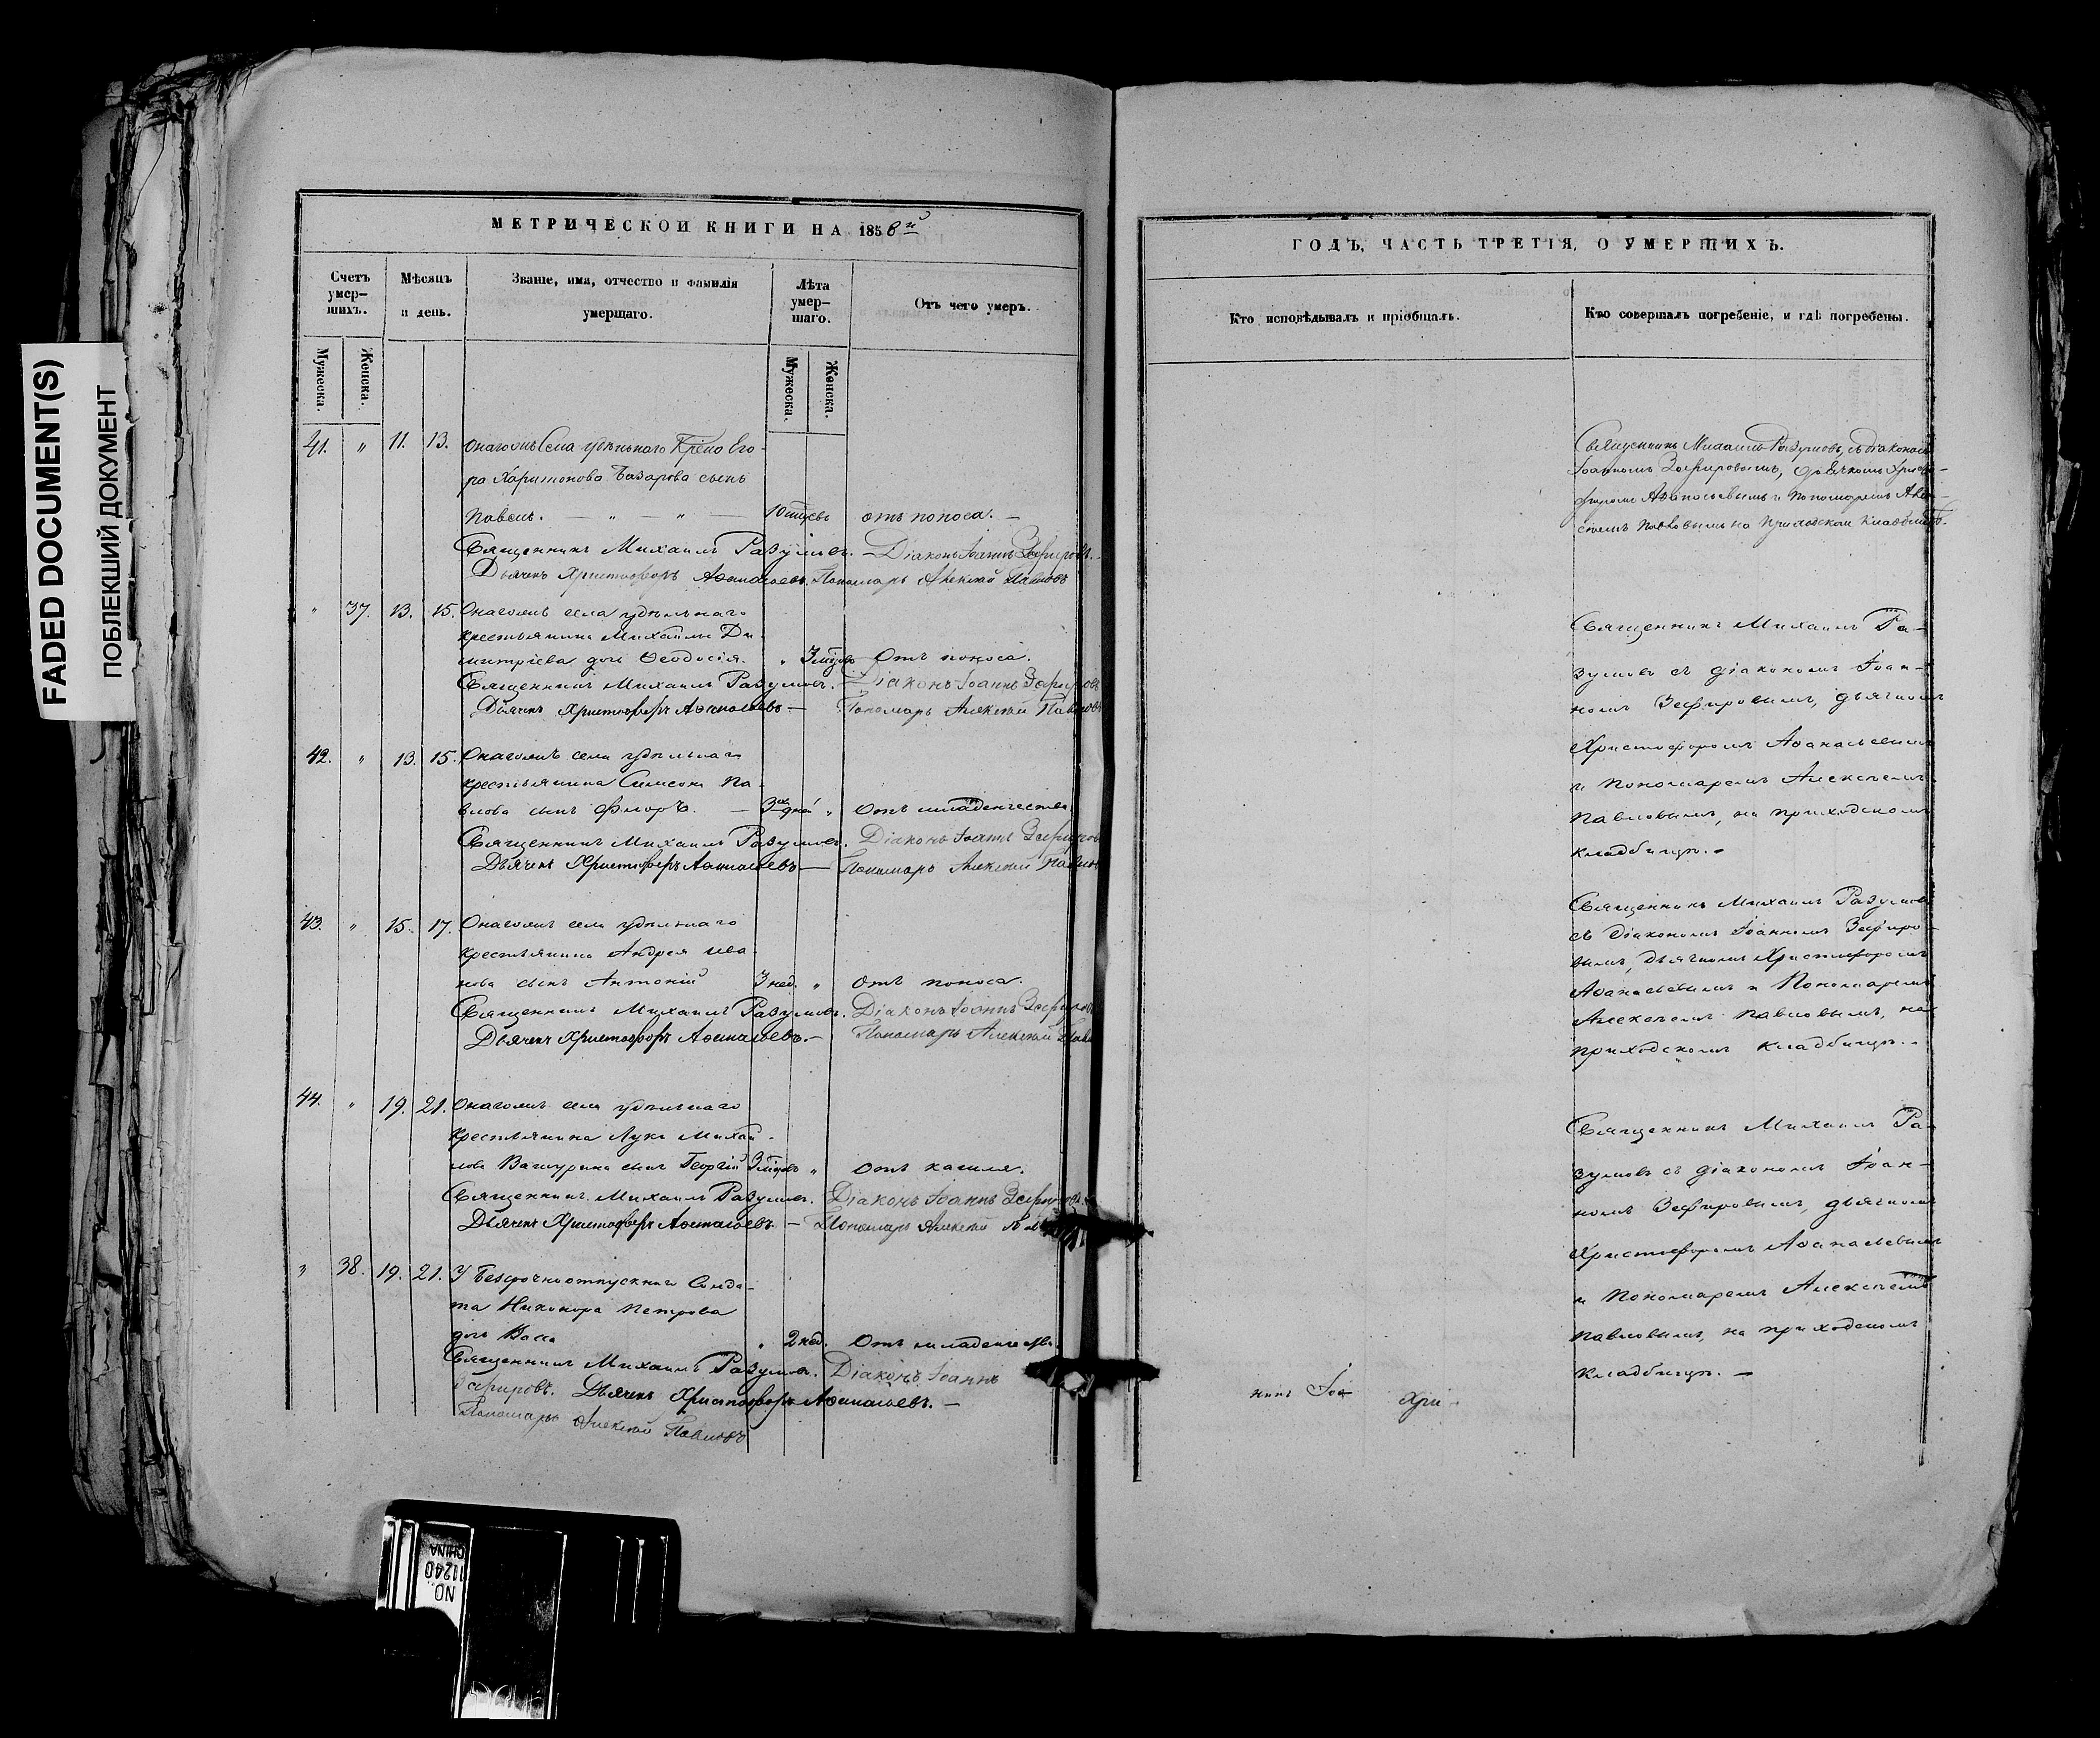 FADED DOCUMENT(S)
ПОБЛЕКШИЙ ДОКУМЕНТ
МЕТРИЧЕСКОЙ КНИГИ НА 1858й
Счетъ умер-
шихъ.
Мѣсяцъ
и день.
Званіе, имя, отчество и фамилія
умершаго.
Лѣта
умер-
шаго.
Отъ чего умеръ.
Мужеска.
Женска.
Мужеска.
Женска.
41. " 11. 13. Онагожъ Села удѣльнаго Его-
ра Харитонова Базарова сынъ
Павелъ. — " — " — 10 отъ поноса. —
Священникъ Михаилъ Разумовъ. — Діаконъ Іоаннъ Зефировъ.
Дьячекъ Христофоръ Аѳанасьевъ. Пономарь Алексѣй Павловъ
" 37. 13. 15. Онагожъ села удѣльнаго
крестьянина Михаилы Ди-
митріева дочь Ѳеодосія. " 3 Отъ поноса.
Священникъ Михаилъ Разумовъ. Діаконъ Іоаннъ Зефировъ
Дьячекъ Христофоръ Аѳанасьевъ — Пономарь Алексѣй Павловъ
42. " 13. 15. Онагожъ села удѣльнаго
крестьянина Симеона Па-
влова сынъ Флоръ. — 3хъ дней " Отъ младенчества
Священникъ Михаилъ Разумовъ. Діаконъ Іоаннъ Зефировъ
Дьячекъ Христофоръ Аѳанасьевъ — Пономарь Алексѣй Павловъ
43. " 15. 17. Онагожъ села удѣльнаго
крестьянина Андрея Ива-
нова сынъ Антоній 3 нед. " Отъ поноса.
Священникъ Михаилъ Разумовъ. Діаконъ Іоаннъ Зефировъ
Дьячекъ Христофоръ Аѳанасьевъ. — Пономарь Алексѣй Павл
44. " 19. 21. Онагожъ села удѣльнаго
крестьянина Луки Михай-
лова сынъ Георгій 3 " Отъ кашля.
Священникъ Михаилъ Разумовъ. Діаконъ Іоаннъ Зефировъ.
Дьячекъ Христофоръ Аѳанасьевъ. — Пономарь Алексѣй Павл
" 38. 19. 21. У Безсрочноотпускнаго Солда-
та Никонора Петрова
дочь Васса " 2 нед. Отъ младенчества.
Священникъ Михаилъ Разумовъ. Діаконъ Іоаннъ
Зефировъ. Дьячекъ Христофоръ Аѳанасьевъ. —
Пономарь Алексѣй Павловъ
ГОДЪ, ЧАСТЬ ТРЕТІЯ, О УМЕРШИХЪ.
Кто исповѣдывалъ и пріобщалъ.
Кто совершалъ погребеніе, и гдѣ погребены.
Священникъ Михаилъ Разумовъ, съ діакономъ
Іоанномъ Зефировымъ, дьячкомъ Христо-
форомъ Аѳанасьевымъ и Пономаремъ Алек-
сѣемъ Павловымъ на приходскомъ кладбищѣ.
Священникъ Михаилъ Ра-
зумовъ съ діакономъ Іоан-
номъ Зефировымъ, дьячкомъ
Христофоромъ Аѳанасьевымъ
и Пономаремъ Алексѣемъ
Павловымъ, на приходскомъ
кладбищѣ. —
Священникъ Михаилъ Разумовъ
съ діакономъ Іоанномъ Зефиро-
вымъ, дьячкомъ Христофоромъ
Аѳанасьевымъ и Пономаремъ
Алексѣемъ Павловымъ, на
приходскомъ кладбищѣ. —
Священникъ Михаилъ Ра-
зумовъ съ діакономъ Іоан-
номъ Зефировымъ, дьячкомъ
Христофоромъ Аѳанасьевымъ
и Пономаремъ Алексѣемъ
Павловымъ, на приходскомъ
кладбищѣ. —
Хри-
NO.
11240
CHINA